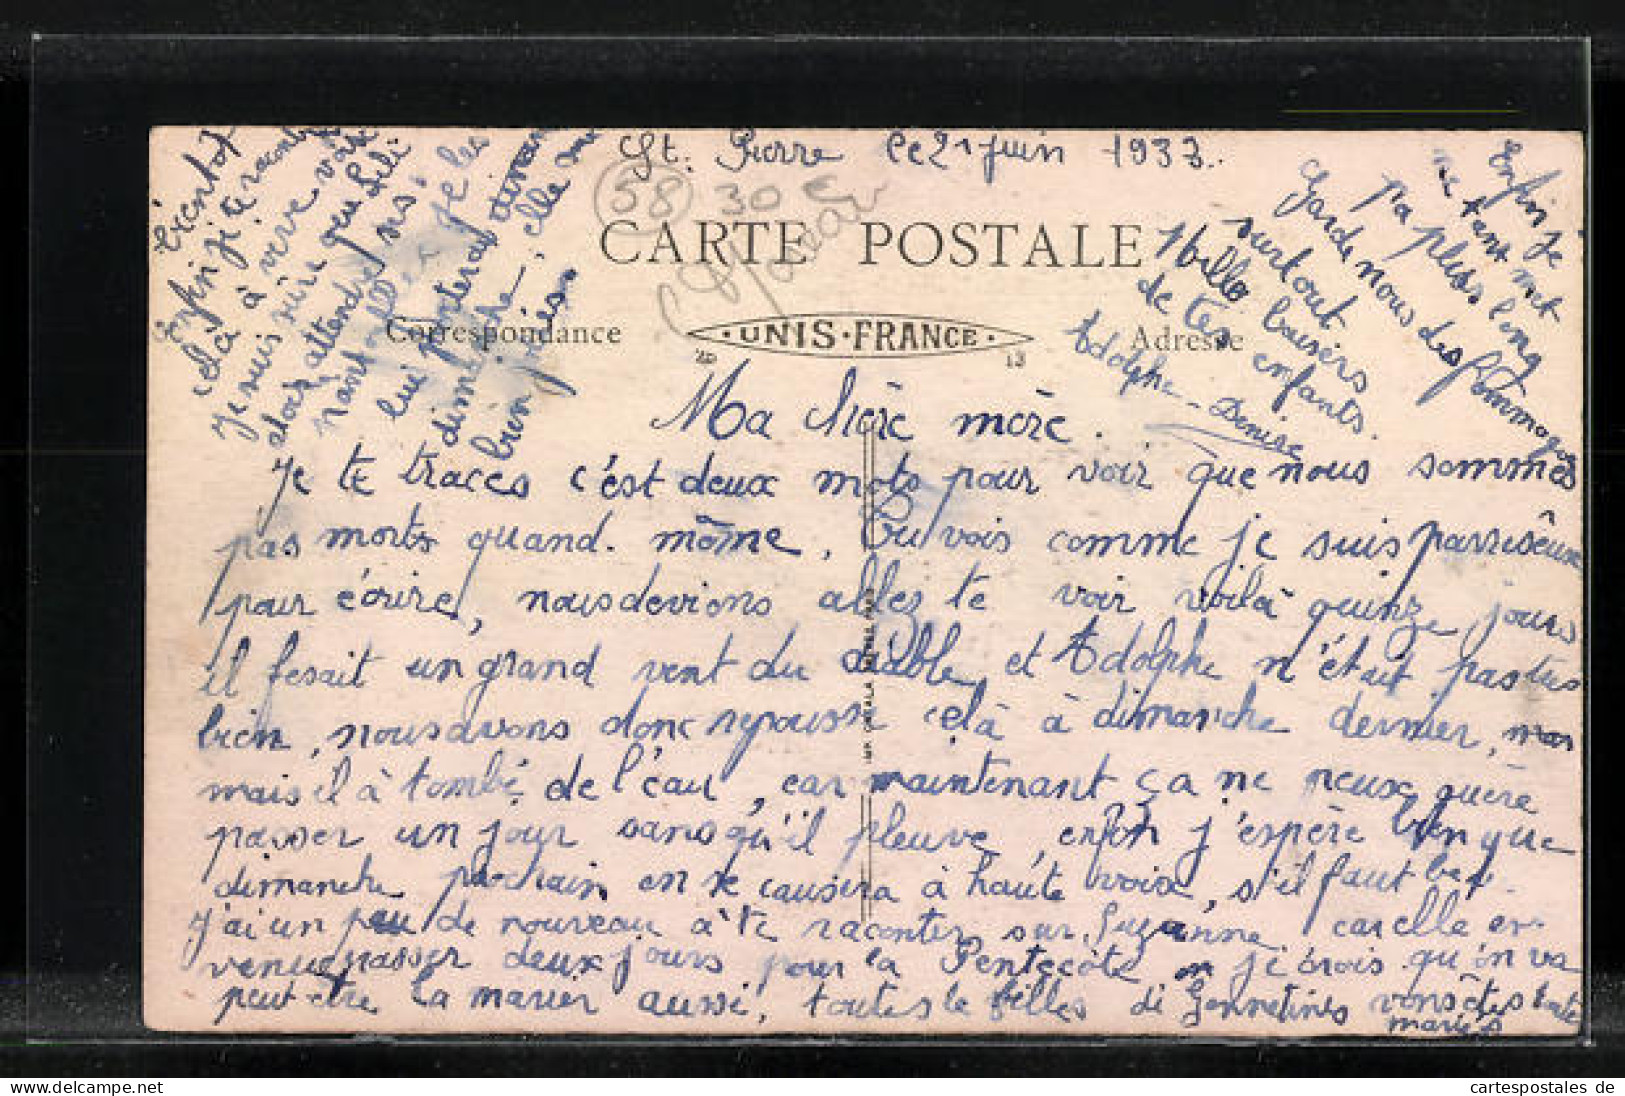 St. Pierre le 21 juin 1933.
58
30
CARTE POSTALE
Correspondance
UNIS-FRANCE
Adresse
20
13
Ma chère mère.
Je te traces c'est deux mots pour voir que nous sommes
pas morts quand. même, Tu vois comme je suis parresseuse
pour écrire, nous devions allez te voir voilà quinze jours
il fesait un grand vent du diable, et Adolphe n'était pas tres
bien, nous avons donc repousse celà à dimanche dernier,
mais il à tombé de l'eau, car maintenant ça ne peux guère
passer un jour sans qu'il pleuve, enfin j'espère bien que
dimanche prochain on se causera à haute voix, s'il faut beau.
j'ai un peu de nouveau à te raconter sur Suzanne. car elle est
venue passer deux jours pour la Pentecôte je crois qu'on va
peut-être la marier aussi, toutes le filles di Gennetines vons êtes toute
mariés
bientot
enfin je te raconterai
celà à vive voix
je suis sûre que Lili
alors attendre ses
maintenant je les
lui porterai dimanche
dimanche, elle
bien
Enfin je
ne tant met
pa pluss long
Garde nous des frommages
surtout
Mille baisers
de tes enfants.
Adolphe - Denise
cartespostales de